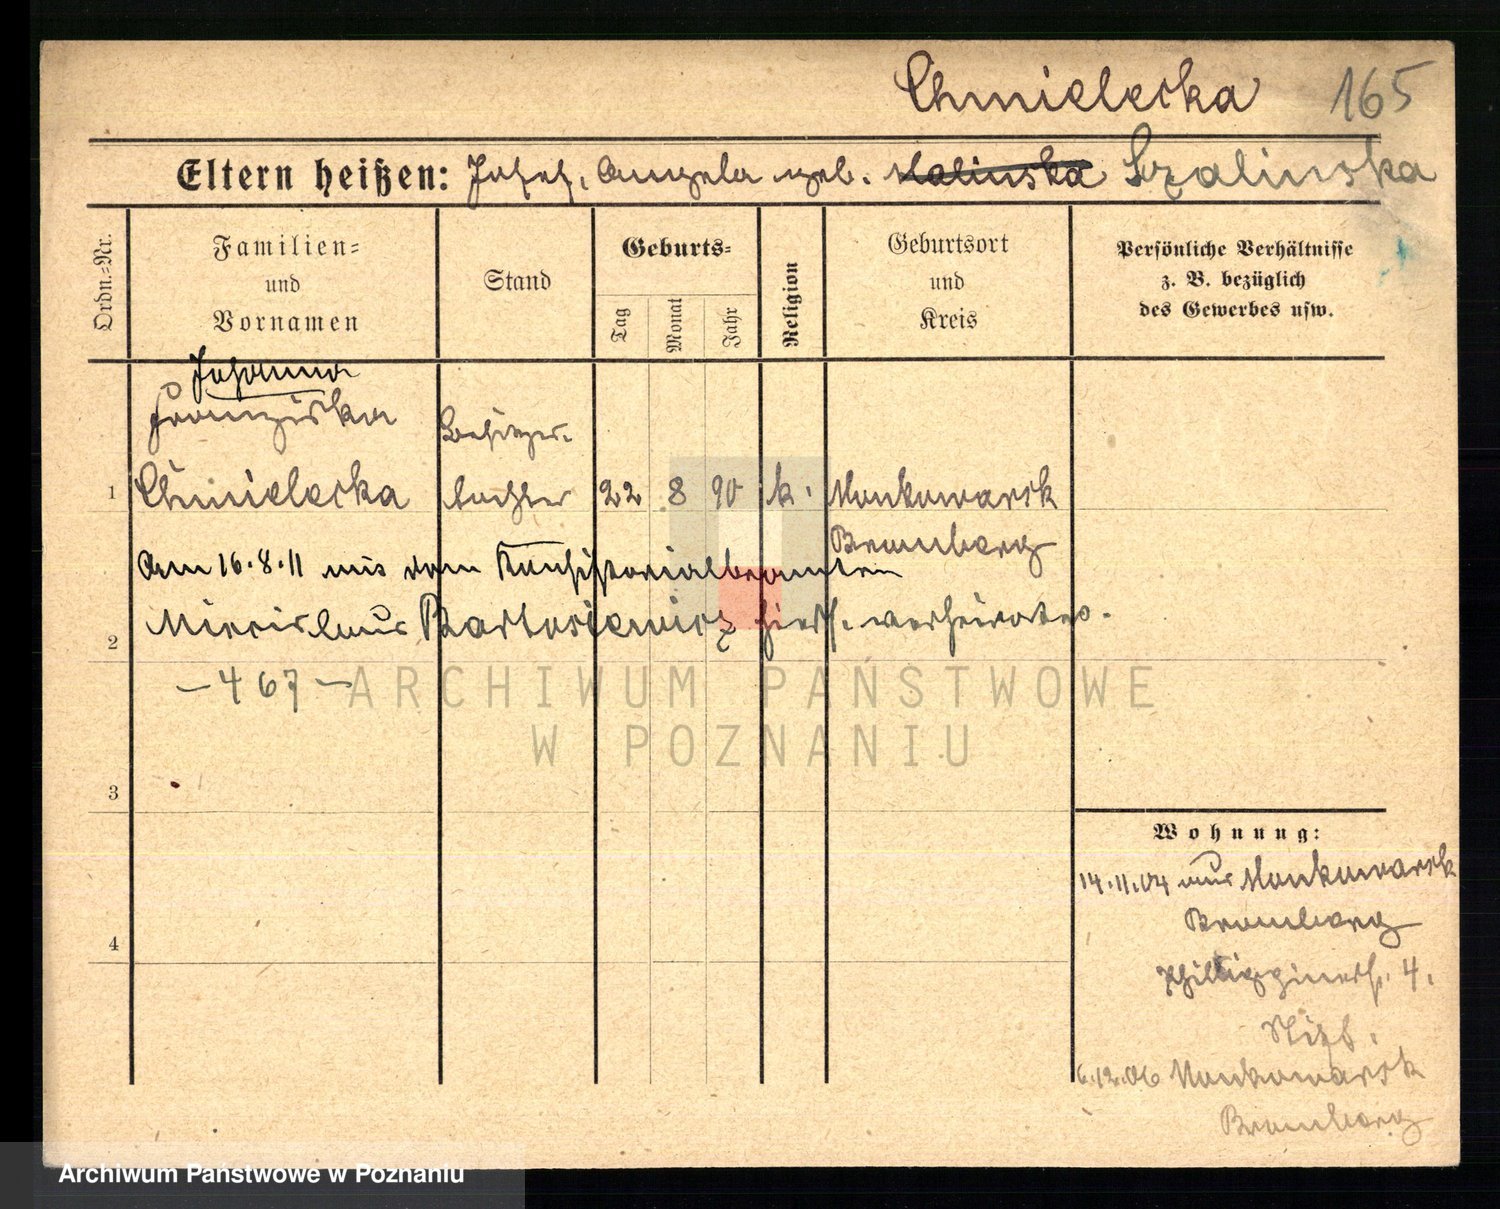 Chmielecka 165
Eltern heißen: Josef, Angela geb. Malinska Szalinska
Ordn.=Nr.
Familien=
und
Vornamen
Stand
Geburts=
Tag
Monat
Jahr
Religion
Geburtsort
und
Kreis
Persönliche Verhältnisse
z. B. bezüglich
des Gewerbes usw.
Johanna
Franziska
Besitzer-
1 Chmielecka tochter 22 8 90 k. Monkowarsk
Bromberg
Am 16.8.11 mit dem Konsistorialbeamten
2 Bartosiewicz hier verheiratet.
— 467 —
ARCHIWUM PAŃSTWOWE
W POZNANIU
3
Wohnung:
14.11.04 aus Monkowarsk
Bromberg
4
4.
6.12.06 Monkowarsk
Bromberg
Archiwum Państwowe w Poznaniu